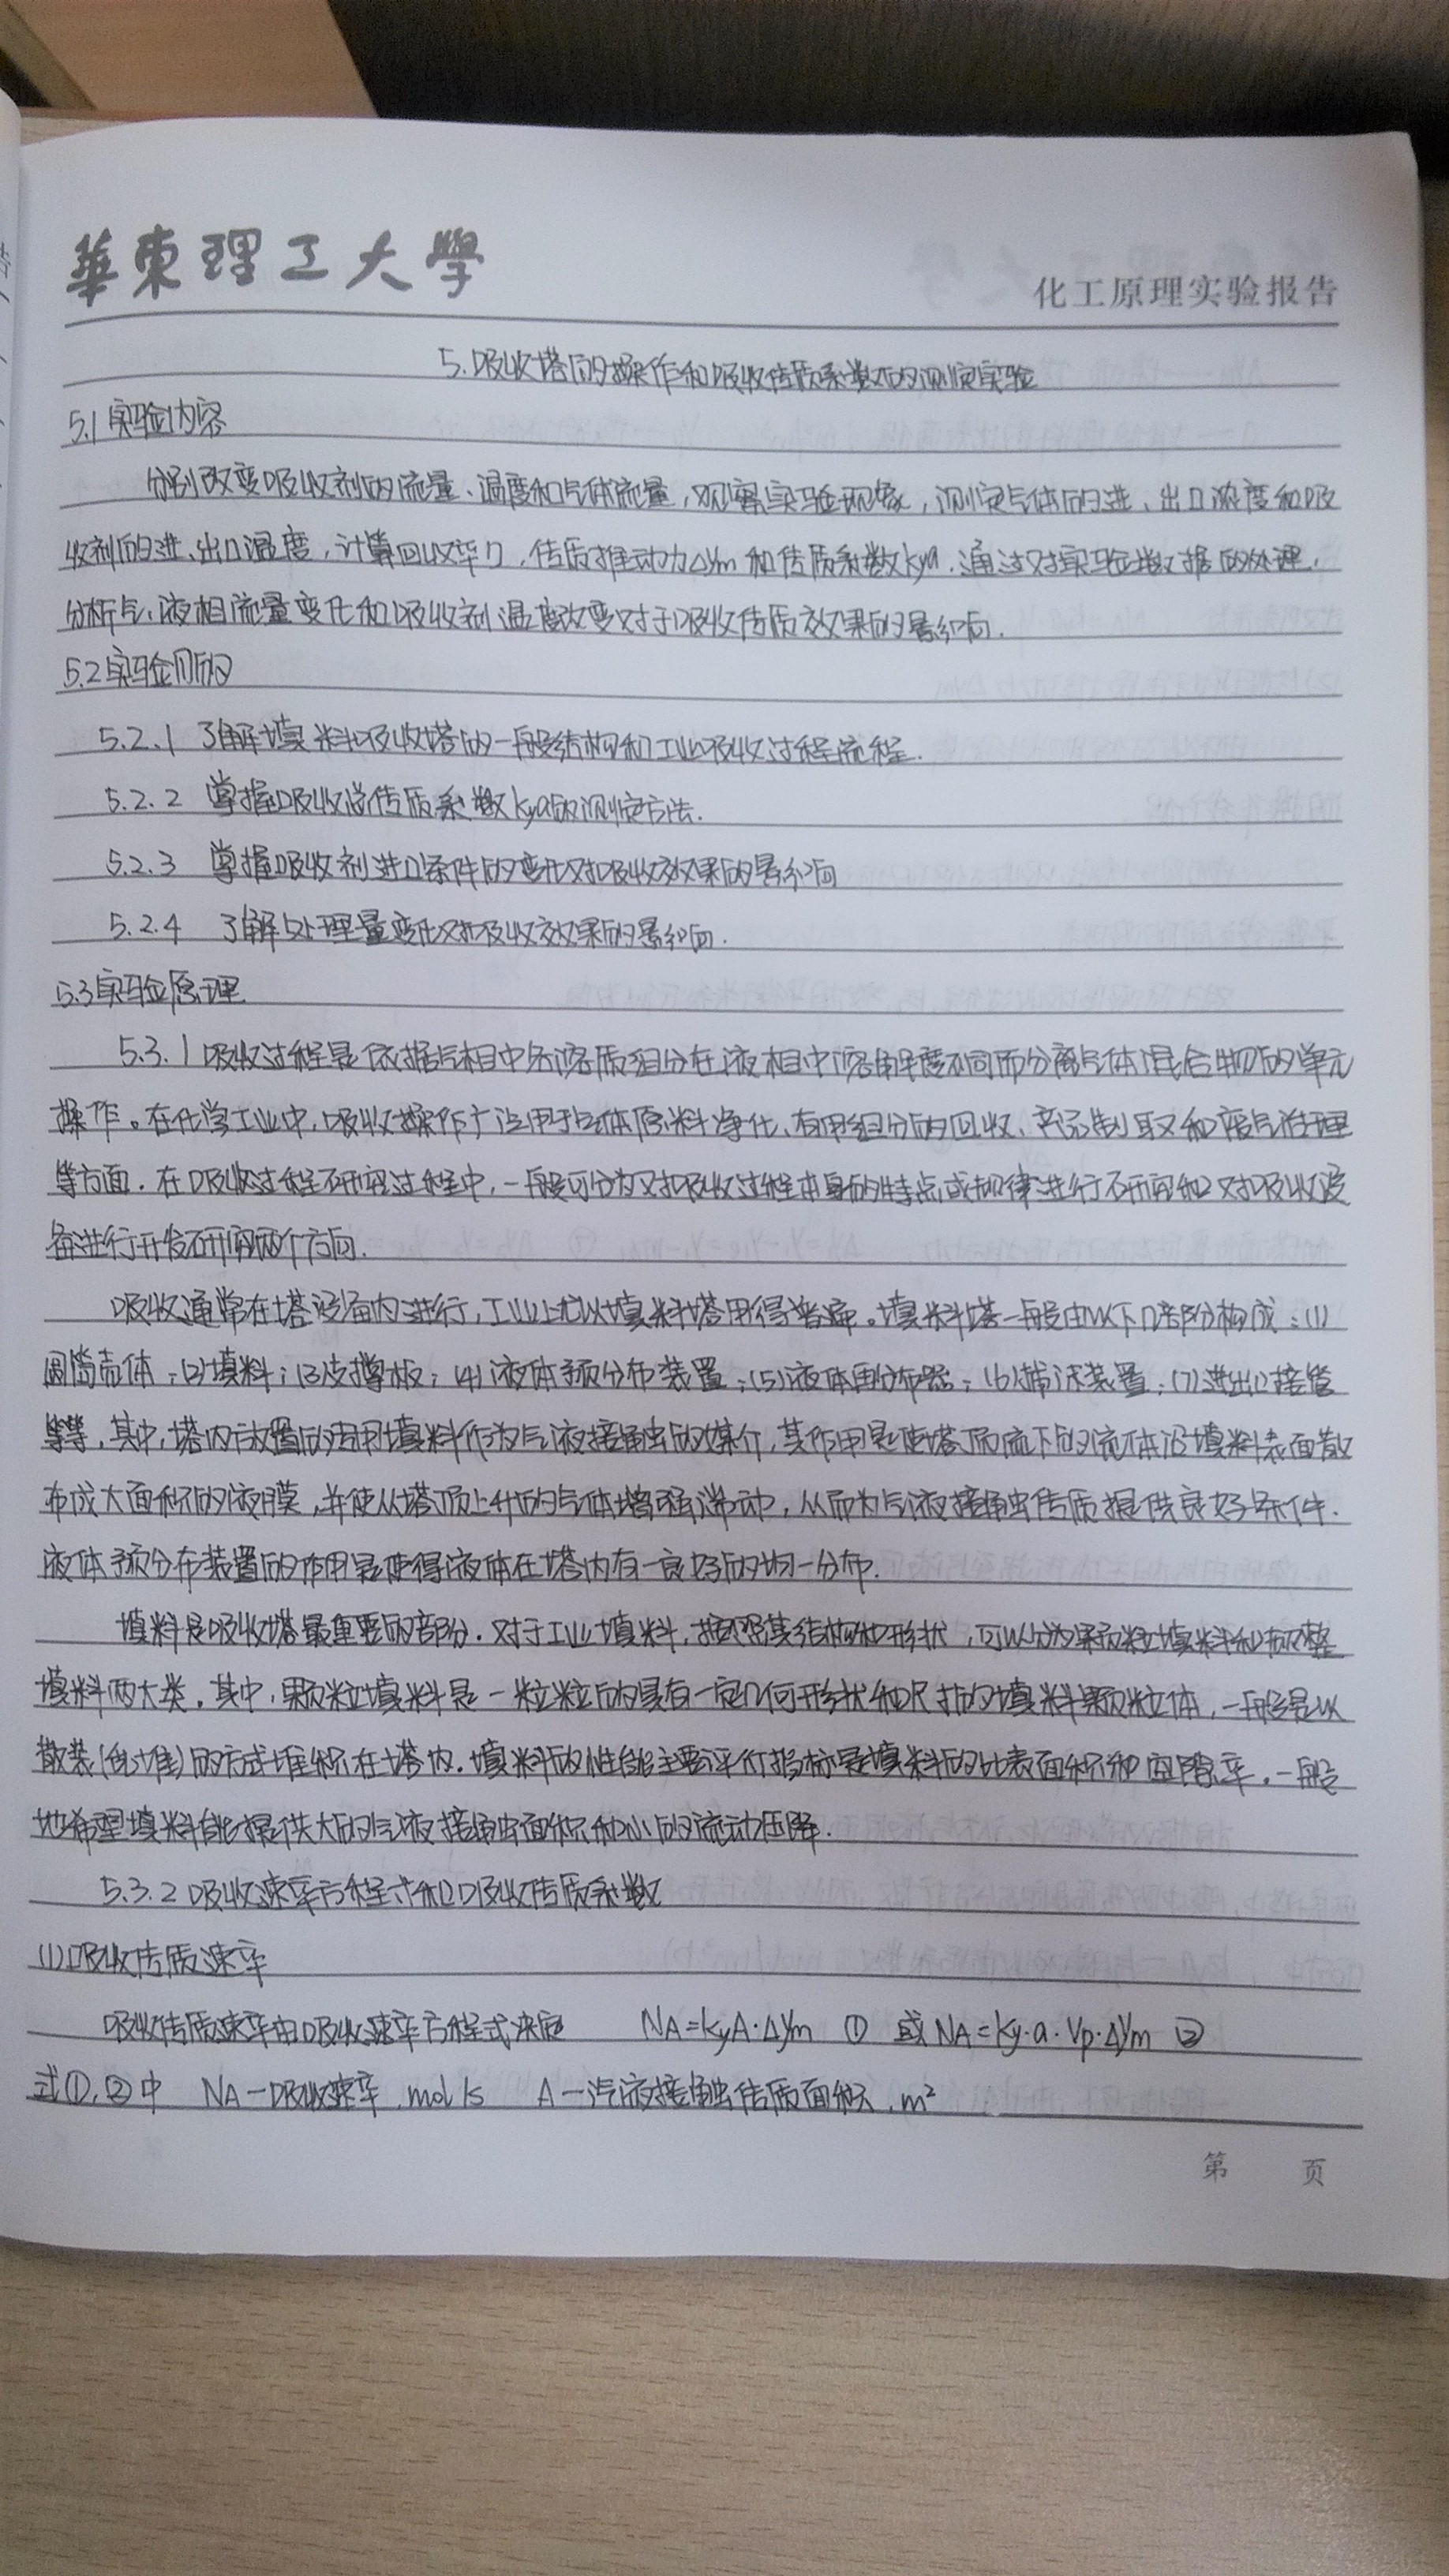 華東理工大學
化工原理实验报告
5.吸收塔的操作和吸收传质系数的测定实验
5.1实验内容
分别改变吸收剂的流量、温度和气体流量,观察实验现象,测定气体的进、出口浓度和吸
收剂的进、出口温度,计算回收率η,传质推动力ΔYm和传质系数kya.通过对实验数据的处理,
分析气、液相流量变化和吸收剂温度改变对于吸收传质效果的影响.
5.2实验目的
5.2.1 了解填料吸收塔的一般结构和工业吸收过程流程.
5.2.2 掌握吸收总传质系数kya的测定方法.
5.2.3 掌握吸收剂进口条件的变化对吸收效果的影响
5.2.4 了解处理量变化对吸收效果的影响.
5.3实验原理
5.3.1吸收过程是依据气相中各溶质组分在液相中溶解度不同而分离气体混合物的单元
操作。在化学工业中,吸收操作广泛用于气体原料净化、有用组分的回收、产品制取和废气治理
等方面.在吸收过程研究过程中,一般可分为对吸收过程本身的特点或规律进行研究和对吸收设
备进行开发研究两个方向.
吸收通常在塔设备内进行,工业上尤以填料塔用得普遍。填料塔一般由以下几部分构成:(1)
圆筒壳体;(2)填料;(3)支撑板;(4)液体预分布装置;(5)液体再分布器;(6)捕沫装置;(7)进出口接管
等等.其中,塔内放置的专用填料作为气液接触的媒介,其作用是使塔顶流下的流体沿填料表面散
布成大面积的液膜,并使从塔顶上升的气体增强湍动,从而为气液接触传质提供良好条件.
液体预分布装置的作用是使得液体在塔内有一良好的均一分布.
填料是吸收塔最重要的部分.对于工业填料,按照其结构和形状,可以分为颗粒填料和规整
填料两大类.其中,颗粒填料是一粒粒的具有一定几何形状和尺寸的填料颗粒体,一般是以
散装(乱堆)的方式堆积在塔内.填料的性能主要评价指标是填料的比表面积和空隙率.一般
地希望填料能提供大的气液接触面积和小的流动压降.
5.3.2吸收速率方程式和吸收传质系数
(1)吸收传质速率
吸收传质速率由吸收速率方程式决定 NA=kyA·ΔYm ① 或NA=ky·a·Vp·ΔYm ②
式①,②中 NA—吸收速率,mol/s A—汽液接触传质面积,m²
第 页